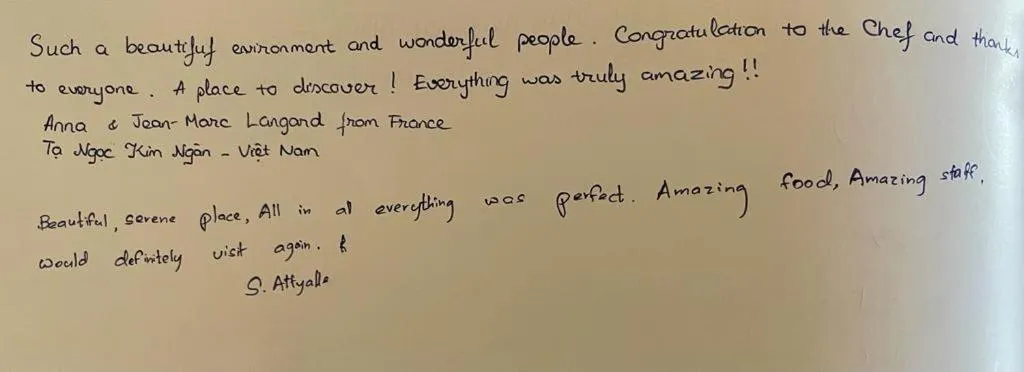 Such a beautiful evironment and wonderful people. Congratulation to the Chef and thanks
to everyone. A place to discover! Everything was truly amazing!!
Anna & Jean-Marc Langard from France
Tạ Ngọc Kim Ngân - Việt Nam
Beautiful, serene place, All in al everything was perfect. Amazing food, Amazing staff.
would definitely visit again.
S. Attyalle